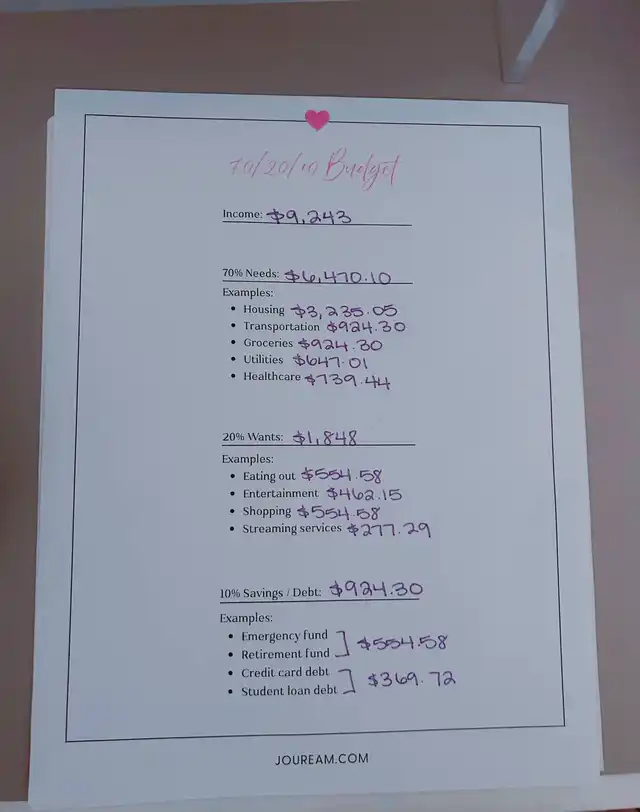 70/20/10 Budget
Income: $9,243
70% Needs: $6,470.10
Examples:
• Housing $3,235.05
• Transportation $924.30
• Groceries $924.30
• Utilities $647.01
• Healthcare $739.44
20% Wants: $1,848
Examples:
• Eating out $554.58
• Entertainment $462.15
• Shopping $554.58
• Streaming services $277.29
10% Savings / Debt: $924.30
Examples:
• Emergency fund
• Retirement fund
$554.58
• Credit card debt
• Student loan debt
$369.72
JOUREAM.COM